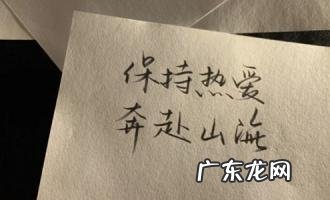 保持热爱
奔赴山海
广东龙网